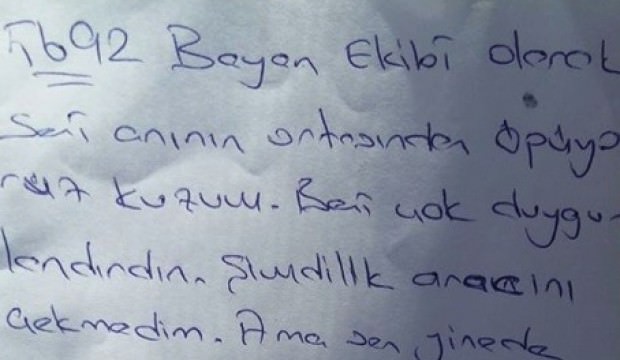 5692 Bayan Ekibi olarak
Seni anının ortasından öpüyo
ruz kuzum. Beni çok duygu-
landırdın. Şimdilik aracını
çekmedim. Ama sen yinede